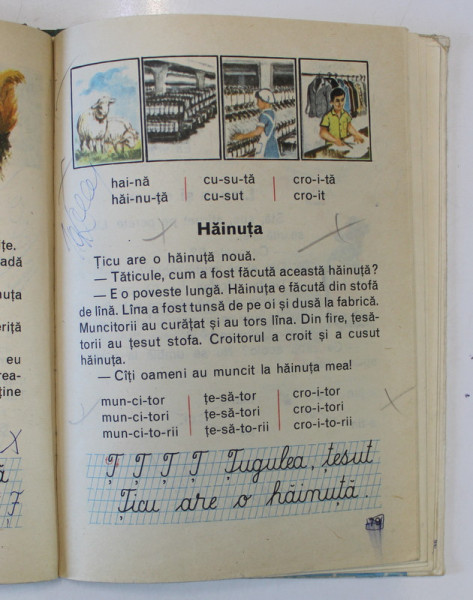 hai-nă cu-su-tă cro-i-tă
hăi-nu-ță cu-sut cro-it
Hăinuța
Țicu are o hăinuță nouă.
— Tăticule, cum a fost făcută această hăinuță?
— E o poveste lungă. Hăinuța e făcută din stofă
de lînă. Lîna a fost tunsă de pe oi și dusă la fabrică.
Muncitorii au curățat și au tors lîna. Din fire, țesă-
torii au țesut stofa. Croitorul a croit și a cusut
hăinuța.
— Cîți oameni au muncit la hăinuța mea!
mun-ci-tor țe-să-tor cro-i-tor
mun-ci-tori țe-să-tori cro-i-tori
mun-ci-to-rii țe-să-to-rii cro-i-to-rii
Ț Ț Ț Ț Țugulea, țesut
Țicu are o hăinuță.
te.
adă
nuța
eriță
eu
rea-
ține
ă
Ț